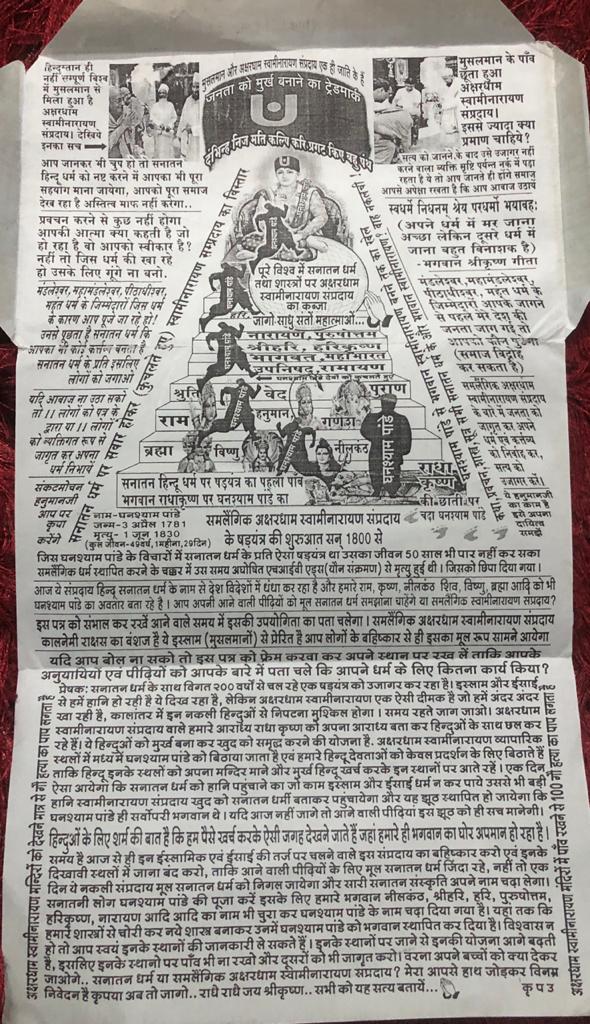 हिन्दुस्तान ही
नहीं सम्पूर्ण विश्व
में मुसलमान से
मिला हुआ है
अक्षरधाम
स्वामीनारायण
संप्रदाय। देखिये
इनका सच
मुसलमान और अक्षरधाम स्वामीनारायण संप्रदाय एक ही जाति के हैं
जनता को मुर्ख बनाने का ट्रेडमार्क
दम्भिन्ह निज मति कल्पि करि प्रगट किए बहु पंथ
मुसलमान के पाँव
छूता हुआ
अक्षरधाम
स्वामीनारायण
संप्रदाय।
इससे ज्यादा क्या
प्रमाण चाहिये?
आप जानकर भी चुप हो तो सनातन
हिन्दू धर्म को नष्ट करने में आपका भी पूरा
सहयोग माना जायेगा, आपको पूरा समाज
देख रहा है अस्तित्व माफ नहीं करेगा..
सत्य को जानने के बाद उसे उजागर नहीं
करने वाला व्यक्ति सृष्टि पर्यन्त नर्क में पड़ा
रहता है ये तो आप जानते ही होंगे समाज
आपसे अपेक्षा रखता है कि आप आवाज उठाये
प्रवचन करने से कुछ नहीं होगा
आपकी आत्मा क्या कहती है जो
हो रहा है वो आपको स्वीकार है?
नहीं तो जिस धर्म की खा रहे
हो उसके लिए गूंगे ना बनो.
स्वधर्मे निधनम् श्रेय परधर्मो भयावहः
(अपने धर्म में मर जाना
अच्छा लेकिन दूसरे धर्म में
जाना बहुत विनाशक है)
- भगवान श्रीकृष्ण गीता
मंडलेश्वर,महामंडलेश्वर, पीठाधीश्वर,
महंत धर्म के जिम्मेदारों जिस धर्म
के कारण आप पूजे जा रहे हो!
उनसे पूछता है सनातन धर्म कि
आपका भी कोई कर्त्तव्य बनता है,
सनातन धर्म के प्रति इसलिए
लोगों को जगाओ
मंडलेश्वर,महामंडलेश्वर,
पीठाधीश्वर, महंत धर्म के
जिम्मेदारों आपके जागने
से पहले मेरे देश की
जनता जाग गई तो
आपको कौन पूजेगा
(समाज विद्रोह
कर सकता है)
यदि आवाज ना उठा सको
तो ।। लोगों को पत्र के
द्वारा या ।। लोगों
को व्यक्तिगत रूप से
जागृत कर अपना
धर्म निभाये
समलैंगिक अक्षरधाम
स्वामीनारायण संप्रदाय
के बारे में जनता को
जागृत कर अपने
धर्म एवं कर्त्तव्य
को निर्वाह कर,
सत्य को
उजागर करें।
संकटमोचन
हनुमानजी
आप पर
कृपा
करेंगे
ये हनुमानजी
का काम है
इसे अपना
दायित्व
समझे
सनातन धर्म पर सवार होकर (कुचलते हुए) स्वामीनारायण सम्प्रदाय का विस्तार
पूरे विश्व में सनातन धर्म
तथा शास्त्रों पर अक्षरधाम
स्वामीनारायण संप्रदाय
का कब्जा
जागो साधु संतों महात्माओं...
हरि,
नारायण, पुरुषोत्तम
श्रीहरि, हरिकृष्ण
भागवत, महाभारत
उपनिषद्, रामायण
घनश्याम पांडे हिन्दू देवों को कुचलते हुए
श्रुति वेद पुराण
राम हनुमान गणेश
ब्रह्मा विष्णु नीलकंठ
घनश्याम पांडे
राधा
कृष्ण
सनातन हिन्दू धर्म पर षड्यंत्र का पहला पाँव
भगवान राधाकृष्ण पर घनश्याम पांडे का
की छाती पर
चढ़ा घनश्याम पांडे
नाम-घनश्याम पांडे
जन्म-3 अप्रेल 1781
मृत्यु- 1 जून 1830
(कुल जीवन-49वर्ष,1महीना,29दिन)
समलैंगिक अक्षरधाम स्वामीनारायण संप्रदाय
के षड़यंत्र की शुरूआत सन् 1800 से
जिस घनश्याम पांडे के विचारों में सनातन धर्म के प्रति ऐसा षड़यंत्र था उसका जीवन 50 साल भी पार नहीं कर सका
समलैंगिक धर्म स्थापित करने के चक्कर में उस समय अघोषित एचआईवी एड्स(यौन संक्रमण) से मृत्यु हुई थी । जिसको छिपा दिया गया ।
आज ये संप्रदाय हिन्दू सनातन धर्म के नाम से देश विदेशों में धंधा कर रहा है और हमारे राम, कृष्ण, नीलकंठ शिव, विष्णु, ब्रह्मा आदि को भी
घनश्याम पांडे का अवतार बता रहे है । आप अपनी आने वाली पीढ़ियों को मूल सनातन धर्म समझाना चाहेंगे या समलैंगिक स्वामीनारायण संप्रदाय?
इस पत्र को संभाल कर रखें आने वाले समय में इसकी उपयोगिता का पता चलेगा । समलैंगिक अक्षरधाम स्वामीनारायण संप्रदाय
कालनेमी राक्षस का वंशज है ये इस्लाम (मुसलमानों) से प्रेरित है आप लोगों के बहिष्कार से ही इसका मूल रूप सामने आयेगा
यदि आप बोल ना सको तो इस पत्र को फ्रेम करवा कर अपने स्थान पर रख लें ताकि आपके
अनुयायियों एवं पीढ़ियों को आपके बारे में पता चले कि आपने धर्म के लिए कितना कार्य किया?
प्रेषक: सनातन धर्म के साथ विगत 200 वर्षों से चल रहे एक षड़यंत्र को उजागर कर रहा है। इस्लाम और ईसाई
से हमें हानि हो रही है ये दिख रहा है, लेकिन अक्षरधाम स्वामीनारायण एक ऐसी दीमक है जो हमें अंदर अंदर
खा रही है, कालांतर में इन नकली हिन्दुओं से निपटना मुश्किल होगा । समय रहते जाग जाओ। अक्षरधाम
स्वामीनारायण संप्रदाय वाले हमारे आराध्य राधा कृष्ण को अपना आराध्य बता कर हिन्दुओं के साथ छल कर
रहे हैं। ये हिन्दुओं को मुर्ख बना कर खुद को समृद्ध करने की योजना है. अक्षरधाम स्वामीनारायण व्यापारिक
स्थलों में मध्य में घनश्याम पांडे को बिठाया जाता है एवं हमारे हिन्दू देवताओं को केवल प्रदर्शन के लिए बिठाते हैं
ताकि हिन्दू इनके स्थलों को अपना मन्दिर माने और मुर्ख हिन्दू खर्च करके इन स्थानों पर आते रहें । एक दिन
ऐसा आयेगा कि सनातन धर्म को हानि पहुचाने का जो काम इस्लाम और ईसाई धर्म न कर पाये उससे भी बड़ी
हानि स्वामीनारायण संप्रदाय खुद को सनातन धर्मी बताकर पहुचायेगा और यह झूठ स्थापित हो जायेगा कि
घनश्याम पांडे ही सर्वोपरी भगवान थे । यदि आज नहीं जागे तो आने वाली पीढ़ियां इस झूठ को ही सच मानेगी।
हिन्दुओं के लिए शर्म की बात है कि हम पैसे खर्च करके ऐसी जगह देखने जाते हैं जहां हमारे ही भगवान का घोर अपमान हो रहा है।
समय है आज से ही इन इस्लामिक एवं ईसाई की तर्ज पर चलने वाले इस संप्रदाय का बहिष्कार करो एवं इनके
दिखावी स्थलों में जाना बंद करो, ताकि आने वाली पीढ़ियों के लिए मूल सनातन धर्म जिंदा रहे, नहीं तो एक
दिन ये नकली संप्रदाय मूल सनातन धर्म को निगल जायेगा और सारी सनातन संस्कृति अपने नाम चढ़ा लेगा।
सनातनी लोग घनश्याम पांडे की पूजा करें इसके लिए हमारे भगवान नीलकंठ, श्रीहरि, हरि, पुरुषोत्तम,
हरिकृष्ण, नारायण आदि आदि का नाम भी चुरा कर घनश्याम पांडे के नाम चढ़ा दिया गया है। यहां तक कि
हमारे शास्त्रों से चोरी कर नये शास्त्र बनाकर उनमें घनश्याम पांडे को भगवान स्थापित कर दिया है। विश्वास न
हो तो आप स्वयं इनके स्थानों की जानकारी ले सकते हैं । इनके स्थानों पर जाने से इनकी योजना आगे बढ़ती
है, इसलिए इनके स्थानो पर पाँव भी ना रखो और दूसरों को भी जागृत करो। वरना अपने बच्चों को क्या देकर
जाओगे.. सनातन धर्म या समलैंगिक अक्षरधाम स्वामीनारायण संप्रदाय? मेरा आपसे हाथ जोड़कर विनम्र
निवेदन है कृपया अब तो जागो.. राधे राधे जय श्रीकृष्ण.. सभी को यह सत्य बतायें...
कृ प उ
अक्षरधाम स्वामीनारायण मंदिरों को देखने मात्र से गौ हत्या का पाप लगता है
अक्षरधाम स्वामीनारायण मंदिरों में पाँव रखने से 100 गौ हत्या का पाप लगता है